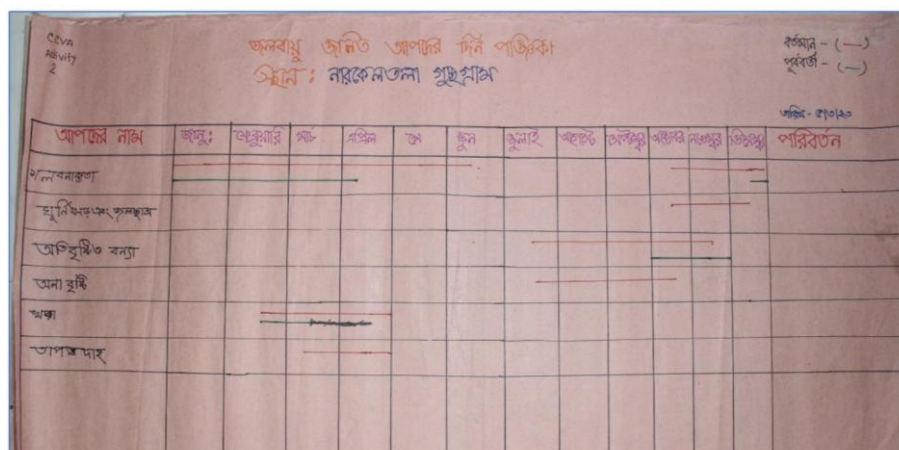 CCVA
Activity
2
জলবায়ু জনিত আপদের দিন পঞ্জিকা
স্থান : নারকেলতলা গুচ্ছগ্রাম
বর্তমান - (—)
পূর্ববর্তী - (—)
আপদের নাম জানু: ফেব্রুয়ারি মার্চ এপ্রিল মে জুন জুলাই আগস্ট সেপ্টেম্বর অক্টোবর নভেম্বর ডিসেম্বর পরিবর্তন
লবনাক্ততা
ঘূর্নিঝড় এবং জলোচ্ছ্বাস
অতিবৃষ্টি ও বন্যা
অনা বৃষ্টি
খরা
তাপদাহ